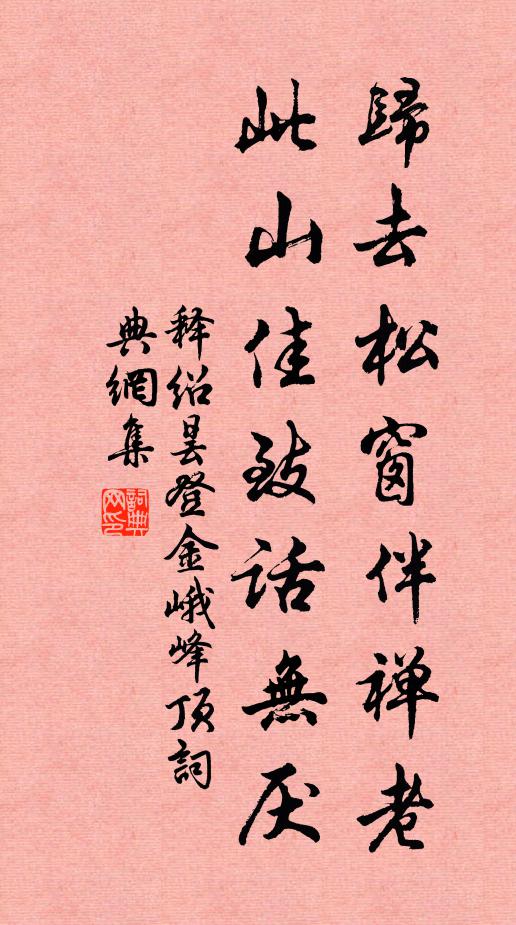 歸去松窗伴禅老
此山佳致話無厌
释绍昙登金峨峰顶詞
典網集
詞典
网印